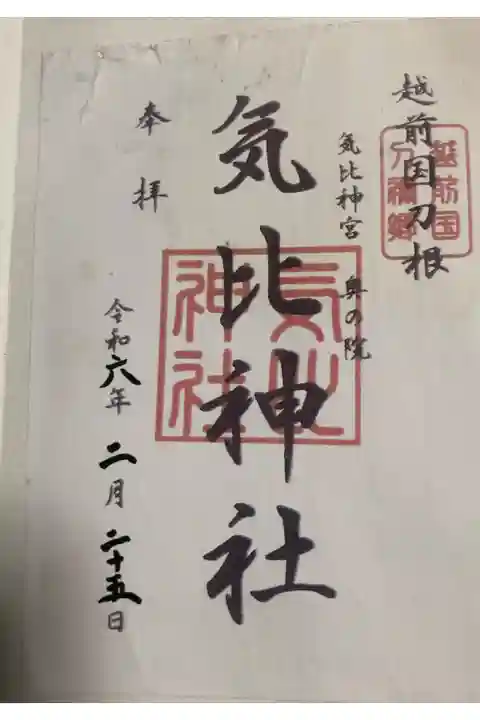 越前国刀根
越前国
刀祢郷
気比神宮 奥の院
気比神社
気比
神社
奉拝
令和六年二月二十五日